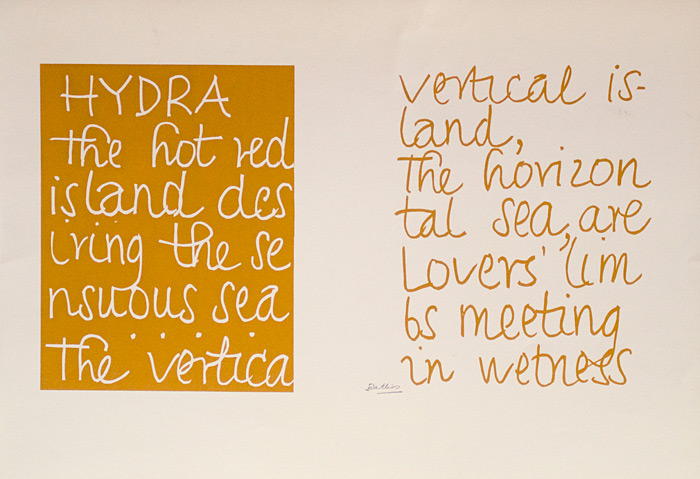 HYDRA
the hot red
island des
iring the se
nsuous sea
The vertica
vertical is-
land,
The horizon
tal sea, are
Lovers' lim
bs meeting
in wetness